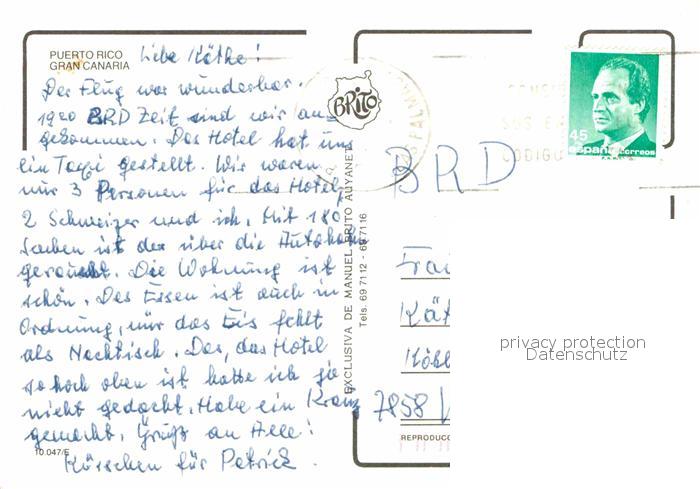 PUERTO RICO
GRAN CANARIA
Liebe Käthe!
Der Flug war wunderbar.
1920 BRD Zeit sind wir an=
gekommen. Das Hotel hat uns
ein Taxi gestellt. Wir waren
nur 3 Personen für das Hotel,
2 Schweizer und ich. Mit 180
Sachen ist der über die Autobahn
gerauscht. Die Wohnung ist
schön. Das Essen ist auch in
Ordnung, nur das Eis fehlt
als Nachtisch. Das, das Hotel
so hoch oben ist hatte ich ja
nicht gedacht. Habe ein Kranz
gemacht. Gruß an Alle!
Küsschen für Patrick.
10.047/E
BRITO
EXCLUSIVA DE MANUEL BRITO AUYANET
Tels. 69 71 12 - 69 71 16
45
españa correos
CODIGO
BRD
Kät
7858
REPRODUC
privacy protection
Datenschutz